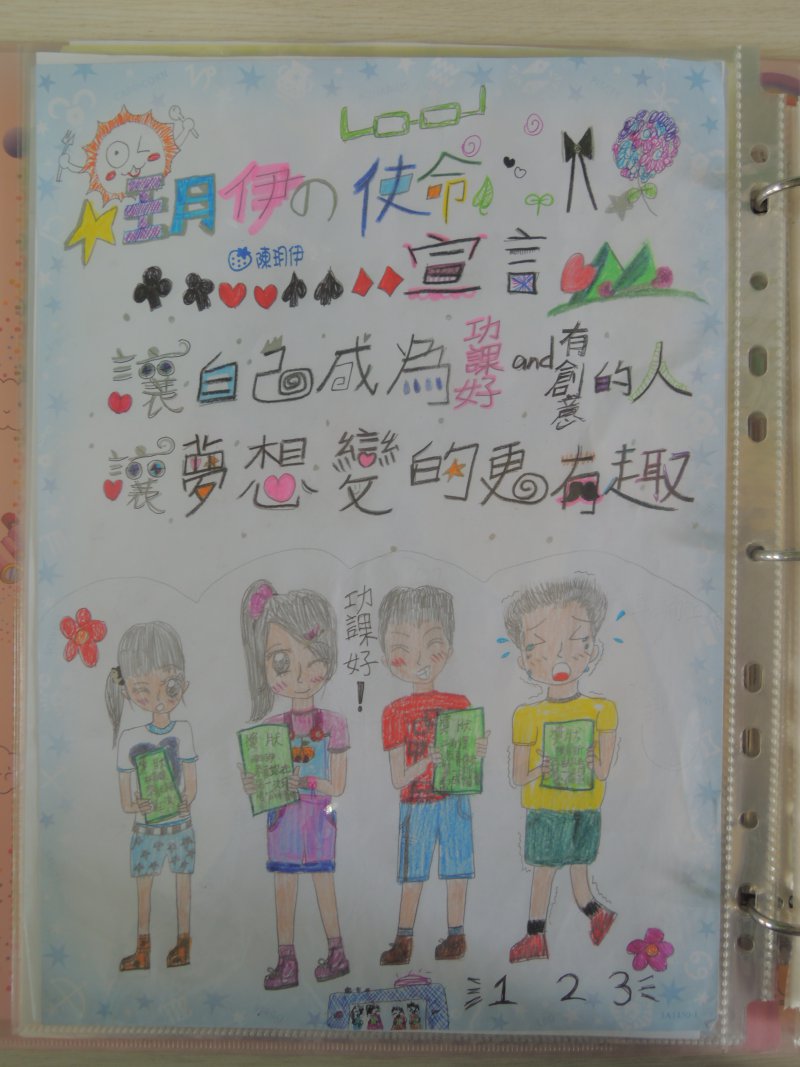 玥伊の使命
陳玥伊
宣言
讓自己成為功課好and有創意的人
讓夢想變的更有趣
功課好！
獎狀
獎狀
獎狀
1 2 3